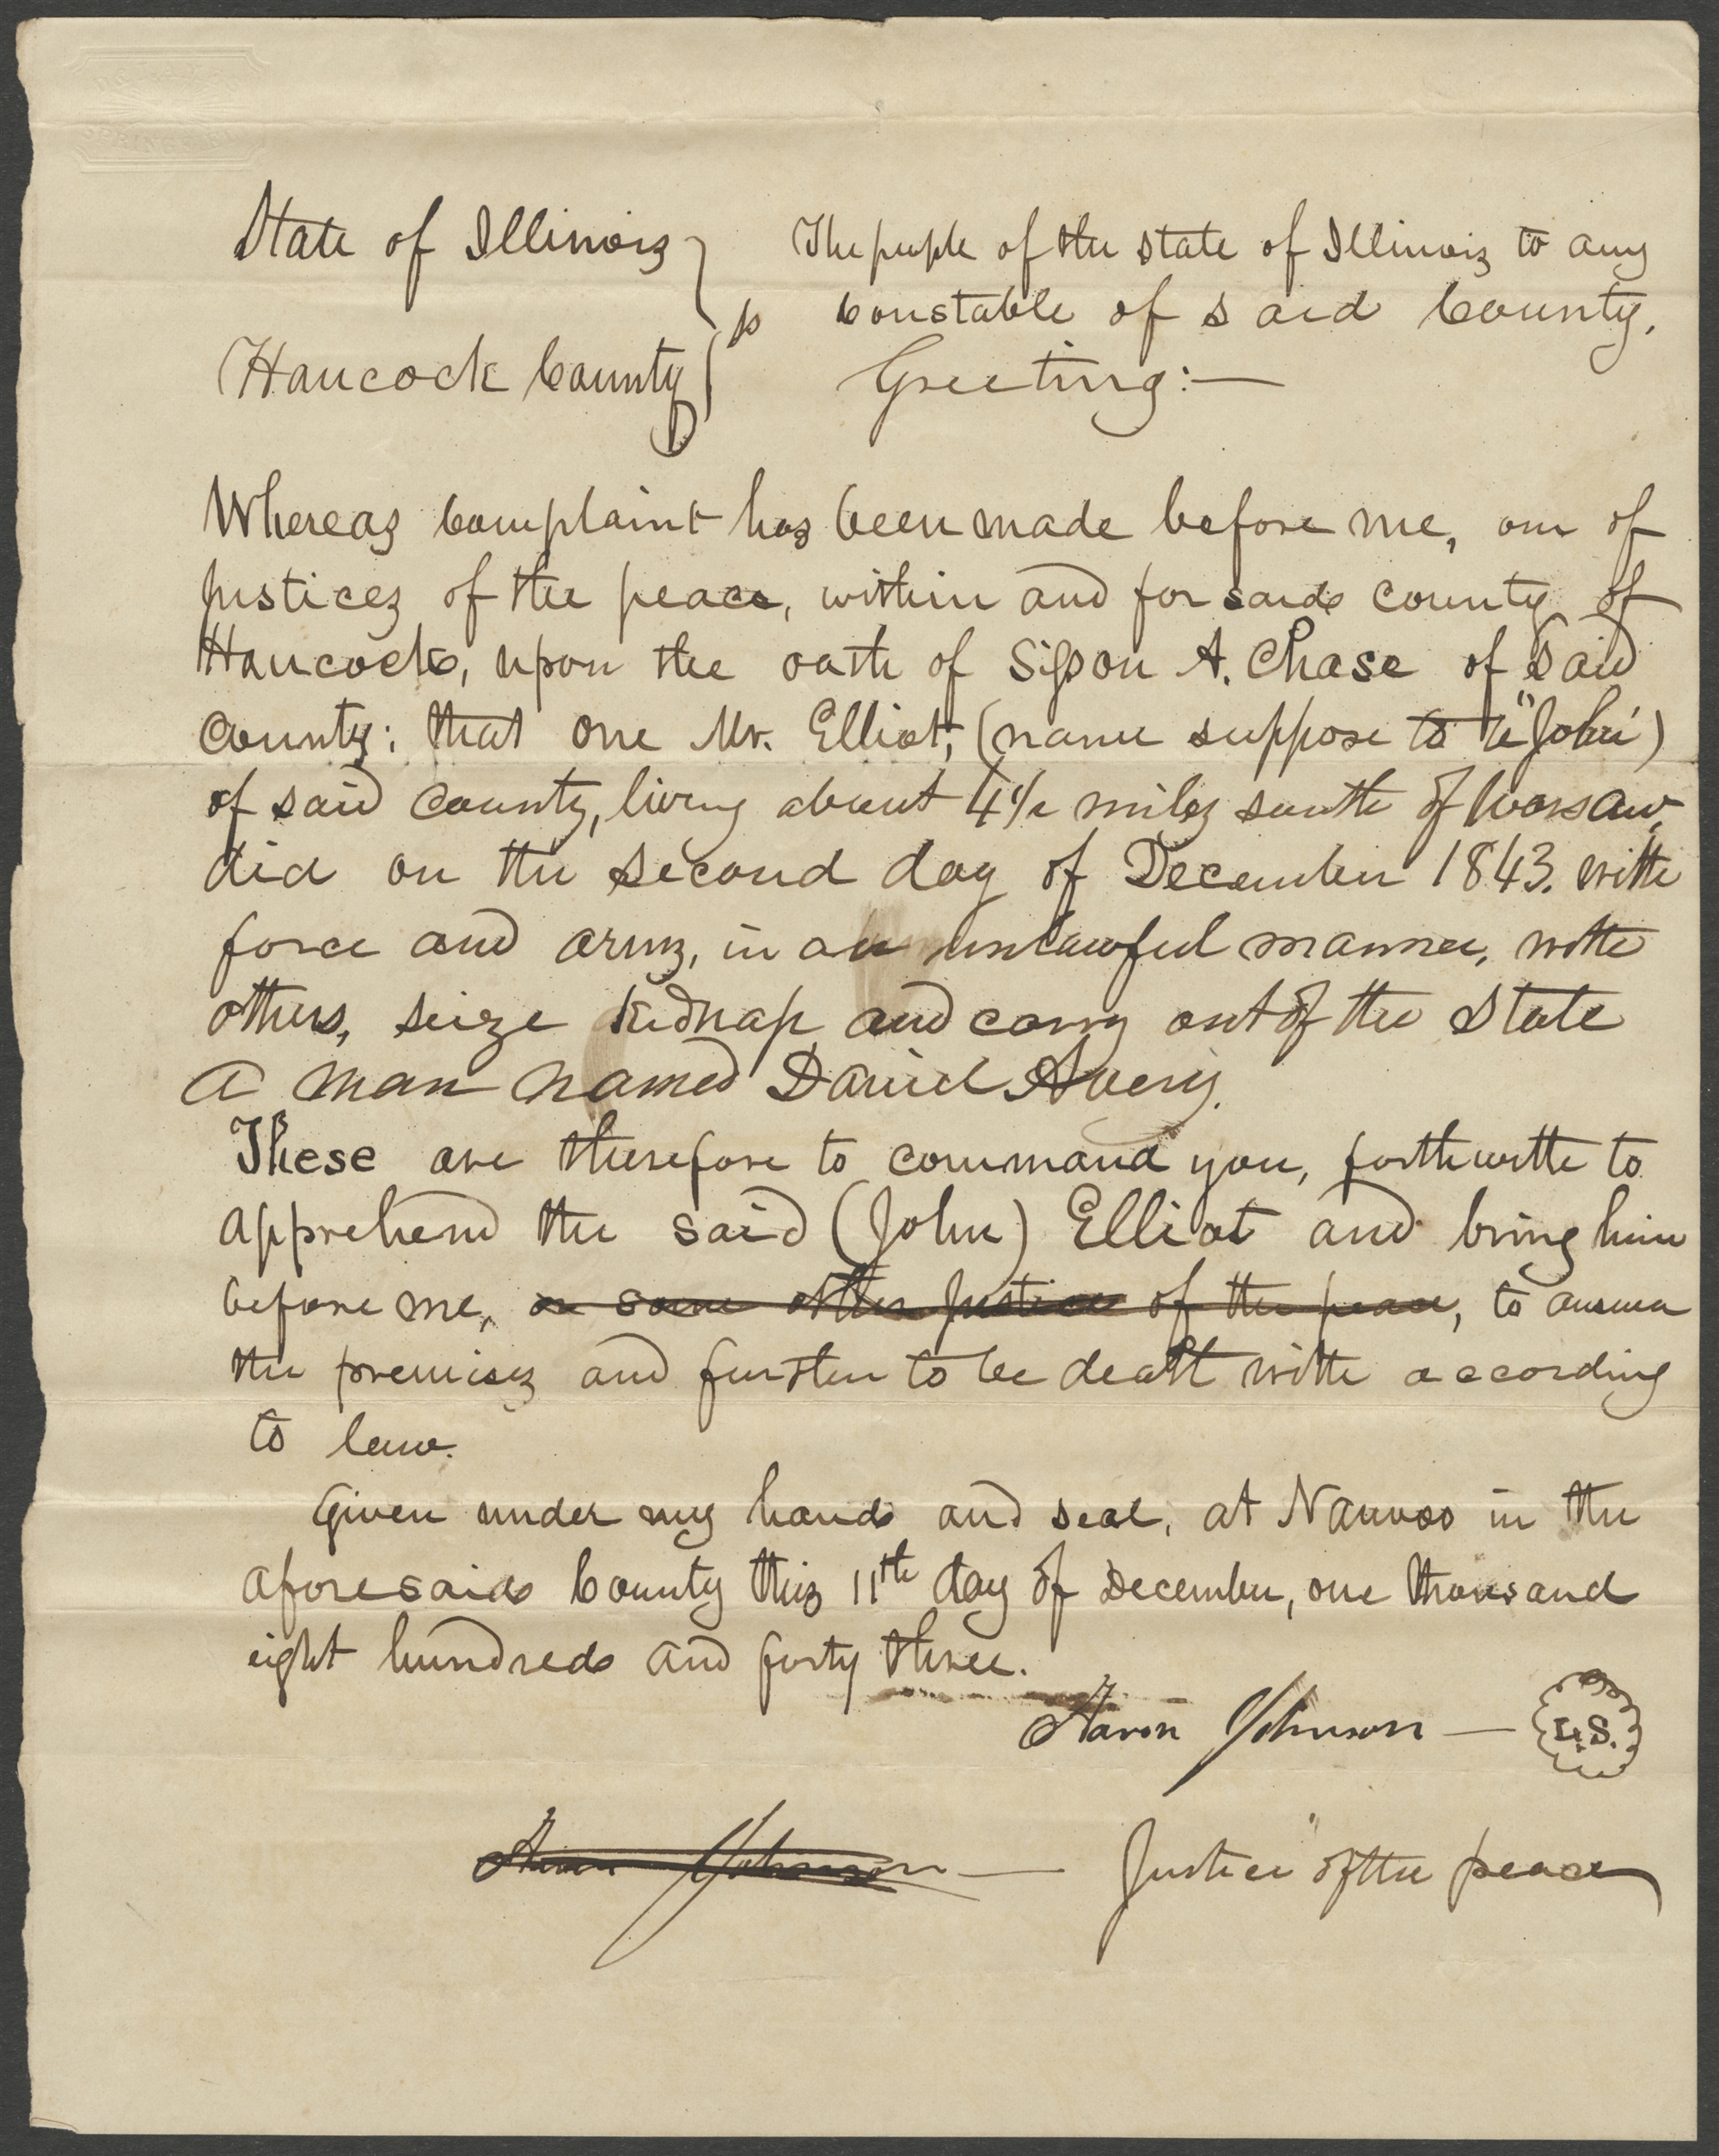 State of Illinois } The people of the state of Illinois to any
ss constable of said County,
Hancock County } Greeting:—
Whereas complaint has been made before me, one of
justices of the peace, within and for said county of
Hancock, upon the oath of Sisson A. Chase of said
County; that one Mr. Elliot, (name suppose to be "John")
of said County, living about 4 1/2 miles south of Warsaw,
did on the second day of December 1843. with
force and arms, in an unlawful manner, with
others, seize kidnap and carry out of the State
a man named Daniel Avery.
These are therefore to command you, forthwith to
apprehend the said (John) Elliot and bring him
before me, or some other justice of the peace, to answer
the premises and further to be dealt with according
to law.
Given under my hand and seal, at Nauvoo in the
aforesaid County this 11th day of December, one thousand
eight hundred and forty three.
Aaron Johnson — L.S.
Aaron Johnson — Justice of the peace